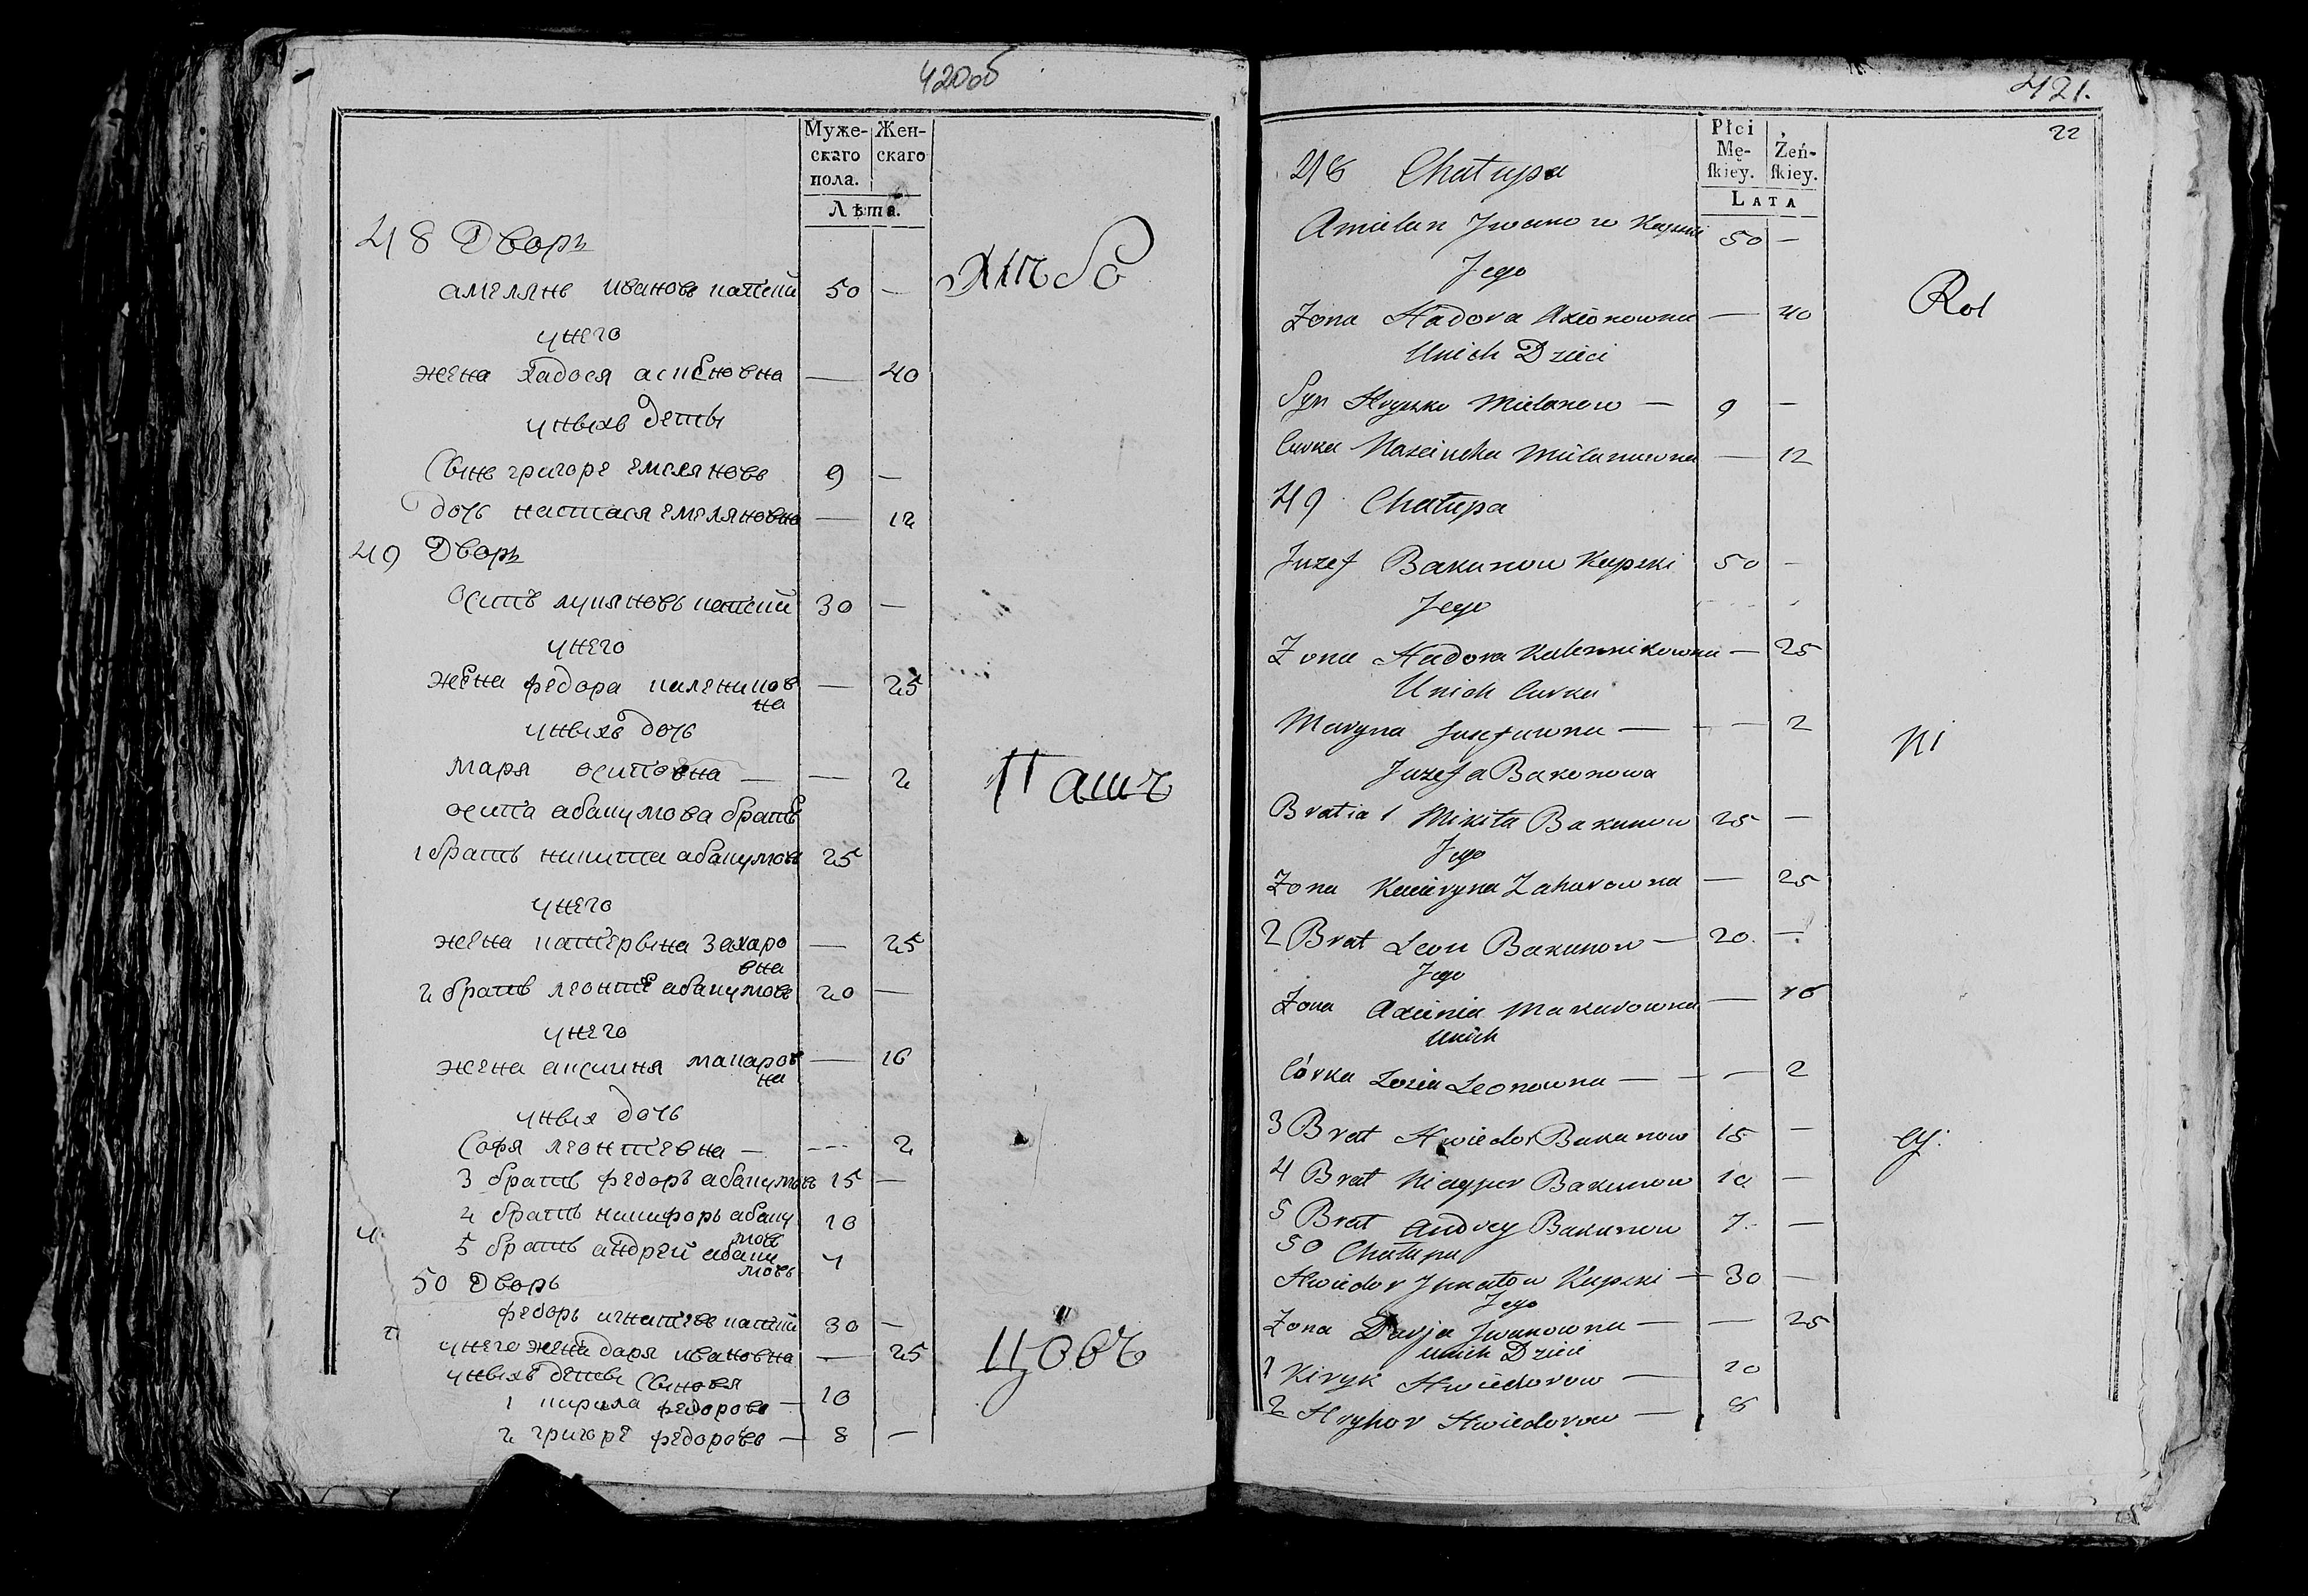 420об
Муже-
скаго
пола.
Жен-
скаго
Лѣта.
48 Дворъ
амелянъ ивановъ 50 —
унего
жена хадося 40
уныхъ деты
Сынъ григоре емеляновъ 9 —
дочь настася емеляновна — 12
49 Дворъ
Осипъ 30 —
унего
жена федора калеников — 25
на
уныхъ дочь
маря осиповна — — 2
осипа абакумова братъ
1 братъ никита абакумов 25
унего
жена катерына захаро — 25
вна
2 братъ леонте абакумовъ 20 —
унего
жена аксиня макаров — 16
на
уных дочь
Софя леонтевна — — 2
3 братъ федоръ абакумовъ 15 —
4 братъ никифоръ абаку 10
мов
5 братъ андрей абаку
мовъ
50 Дворъ
федоръ игнатевъ 30 —
унего жена даря ивановна — 25
уныхъ деты Сыновя
1 кирила федоровъ — 10
2 григоре федоровъ — 8 —
Пашъ
421.
22
Płci
Mę-
ſkiey.
Żeń-
ſkiey.
LATA
48 Chatupa
Amielan Iwanow Kapski 50 —
Jego
Zona Hadora Axionowna — 40
Unich Dzieci
Syn Hryszko Mielanow — 9 —
Curka Mielanowna — 12
49 Chatupa
Juzef Bakunow Kapski 50 —
Jego
Zona Hadora Kalennikowna — 25
Unich Curka
Maryna Juzefowna — — — 2
Juzefa Bakonowa
Bratia 1 Mikita Bakunow 25 —
Jego
Zona Kaciaryna Zaharowna — 25
2 Brat Leon Bakunow — 20 —
Jego
Zona Axinia Makarowna — 16
Unich
Córka Zozia Leonowna — — — 2
3 Brat Hwiedor Bakunow 15 —
4 Brat Bakunow 10 —
5 Brat Andrey Bakunow 7 —
50 Chatupa
Hwiedor Ihnatow Kapski — 30 —
Jego
Zona Darja Iwanowna — — 25
Unich Dzieci
1 Kiryk Hwiedorow — 10
2 Hryhor Hwiedorow — 8
Rol
ni
cy.